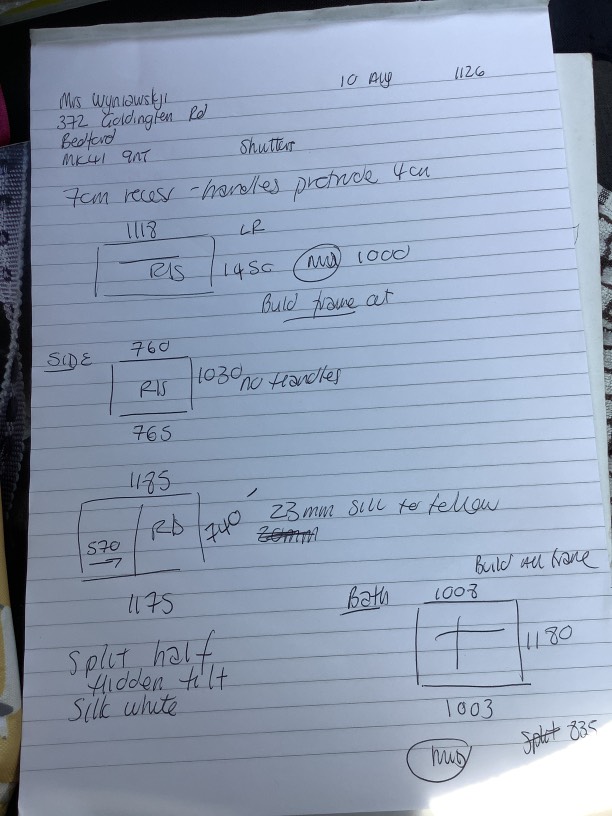 10 Aug 1126
Mrs Wyniawskyi
372 Goldington Rd
Bedford
MK41 9NT
Shutters
7cm recess - handles protrude 4cm
1118 LR
R/S 1450 Mid 1000
Build frame out
SIDE 760
R/S 1030 no handles
765
1185
570 R/S 740 23mm sill to tellow
20mm
1175
Build all frame
Bath 1008
1180
1003
Split half
Hidden tilt
Silk white
Split 835
Mid